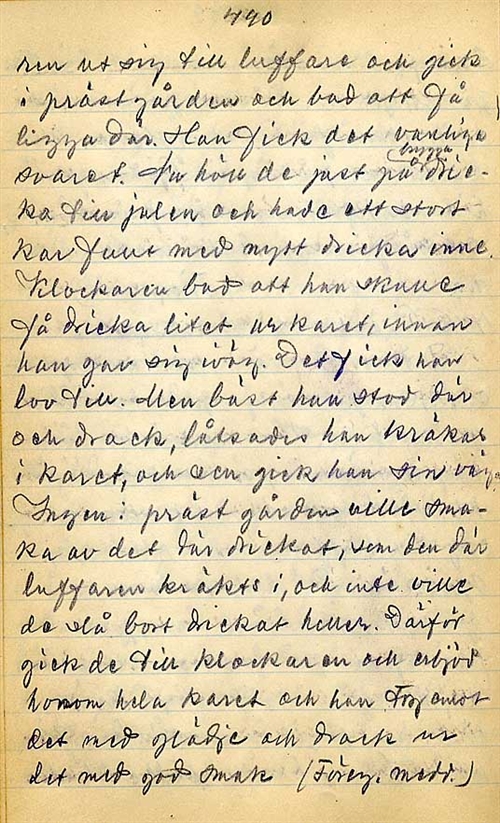 490
ren ut sig till luffare och gick
i prästgården och bad att få
ligga där. Han fick det vanliga
svaret. Nu höll de just på brygga dric-
ka till julen och hade ett stort
kar fullt med nytt dricka inne.
Klockaren bad att han skulle
få dricka litet ur karet, innan
han gav sig iväg. Det fick han
lov till. Men bäst han stod där
och drack, låtsades han kräkas
i karet, och sen gick han sin väg.
Ingen i prästgården ville sma-
ka av det där drickat, som den där
luffaren kräkts i, och inte ville
de slå bort drickat heller. Därför
gick de till klockaren och erbjöd
honom hela karet och han tog emot
det med glädje och drack ur
det med god smak (Föreg. medd.)